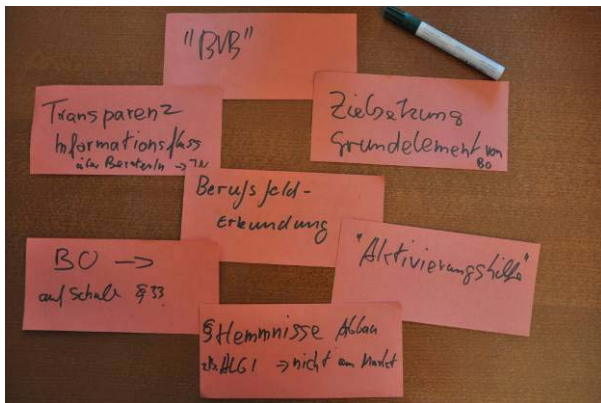 "BVB"
Transparenz
Informationsfluss
über BeraterIn → TN
Zielsetzung
Grundelement von
BO
Berufsfeld-
Erkundung
BO →
auf Schule § 33
"Aktivierungshilfe"
§ Hemmnisse Abbau
ALG I → nicht am Markt